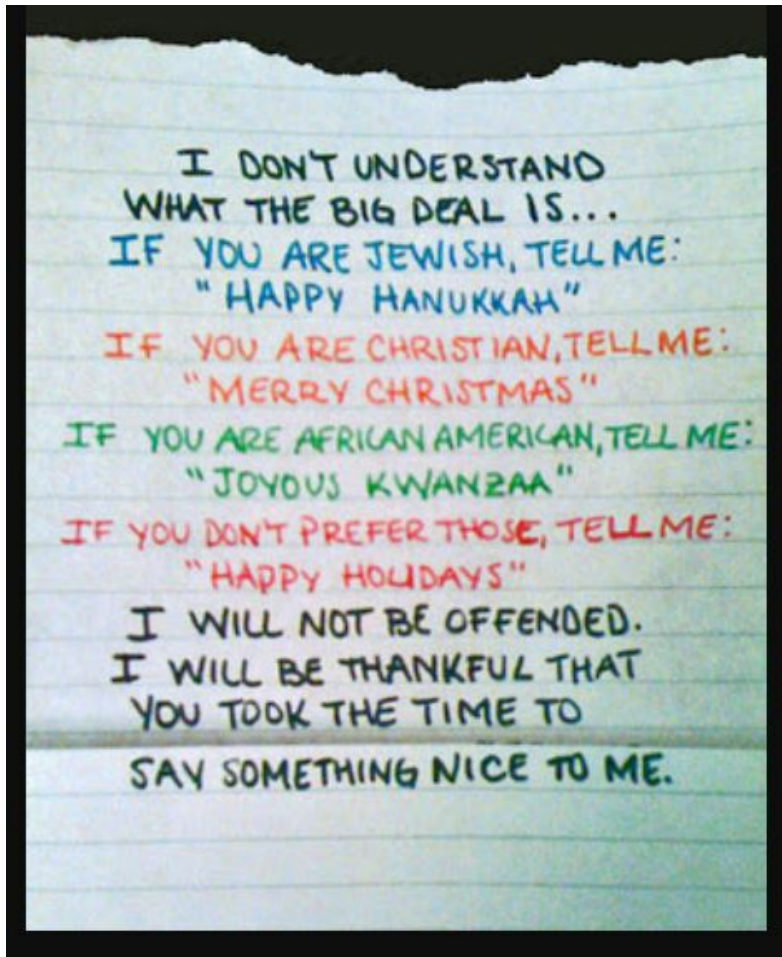 I DON'T UNDERSTAND
WHAT THE BIG DEAL IS...
IF YOU ARE JEWISH, TELL ME:
"HAPPY HANUKKAH"
IF YOU ARE CHRISTIAN, TELL ME:
"MERRY CHRISTMAS"
IF YOU ARE AFRICAN AMERICAN, TELL ME:
"JOYOUS KWANZAA"
IF YOU DON'T PREFER THOSE, TELL ME:
"HAPPY HOLIDAYS"
I WILL NOT BE OFFENDED.
I WILL BE THANKFUL THAT
YOU TOOK THE TIME TO
SAY SOMETHING NICE TO ME.